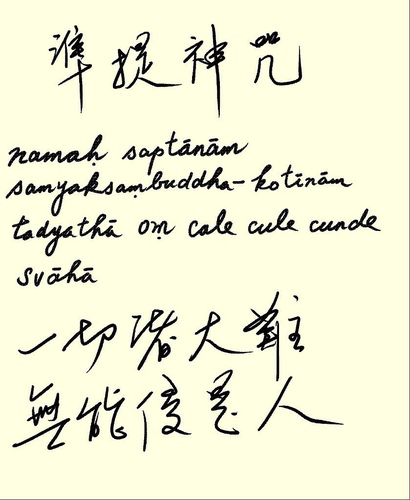 準提神咒
namaḥ saptānām
samyaksaṃbuddha-kotīnām
tadyathā oṃ cale cule cunde
svāhā
一切諸大難
無能侵是人